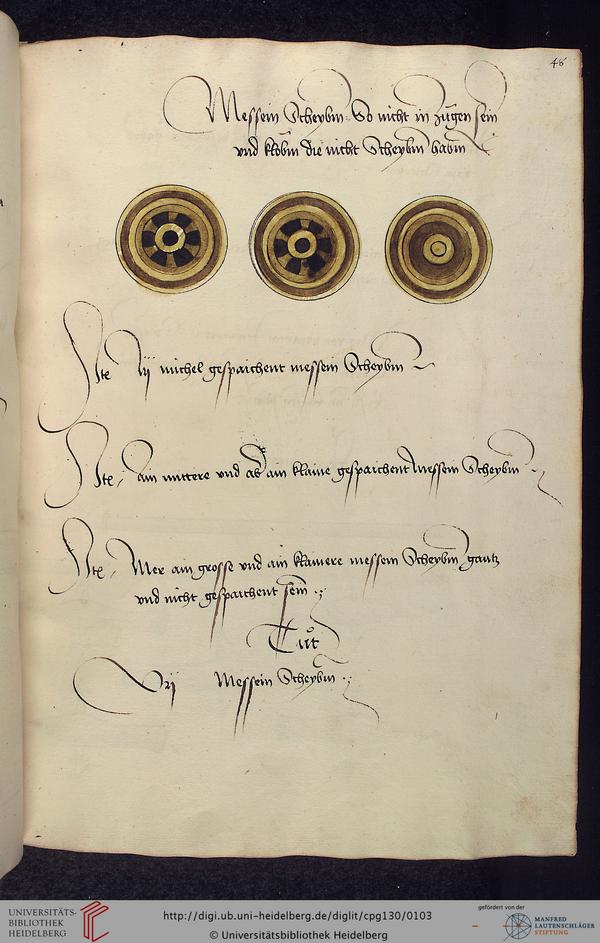 48
Messein Scheybm So nicht in zugen sein
vnd klobm die nicht Scheybm habm
Ite michel gespaichent messein Scheybm
Ite ain mittere vnd ab ain klaine gespaichent Messein Scheybm
Ite Mer ain grosse vnd ain klainere messein Scheybm gantz
vnd nicht gespaichent sein
Tut
Messein Scheybm
UNIVERSITÄTS-
BIBLIOTHEK
HEIDELBERG
http://digi.ub.uni-heidelberg.de/diglit/cpg130/0103
© Universitätsbibliothek Heidelberg
gefördert von der
MANFRED
LAUTENSCHLÄGER
STIFTUNG